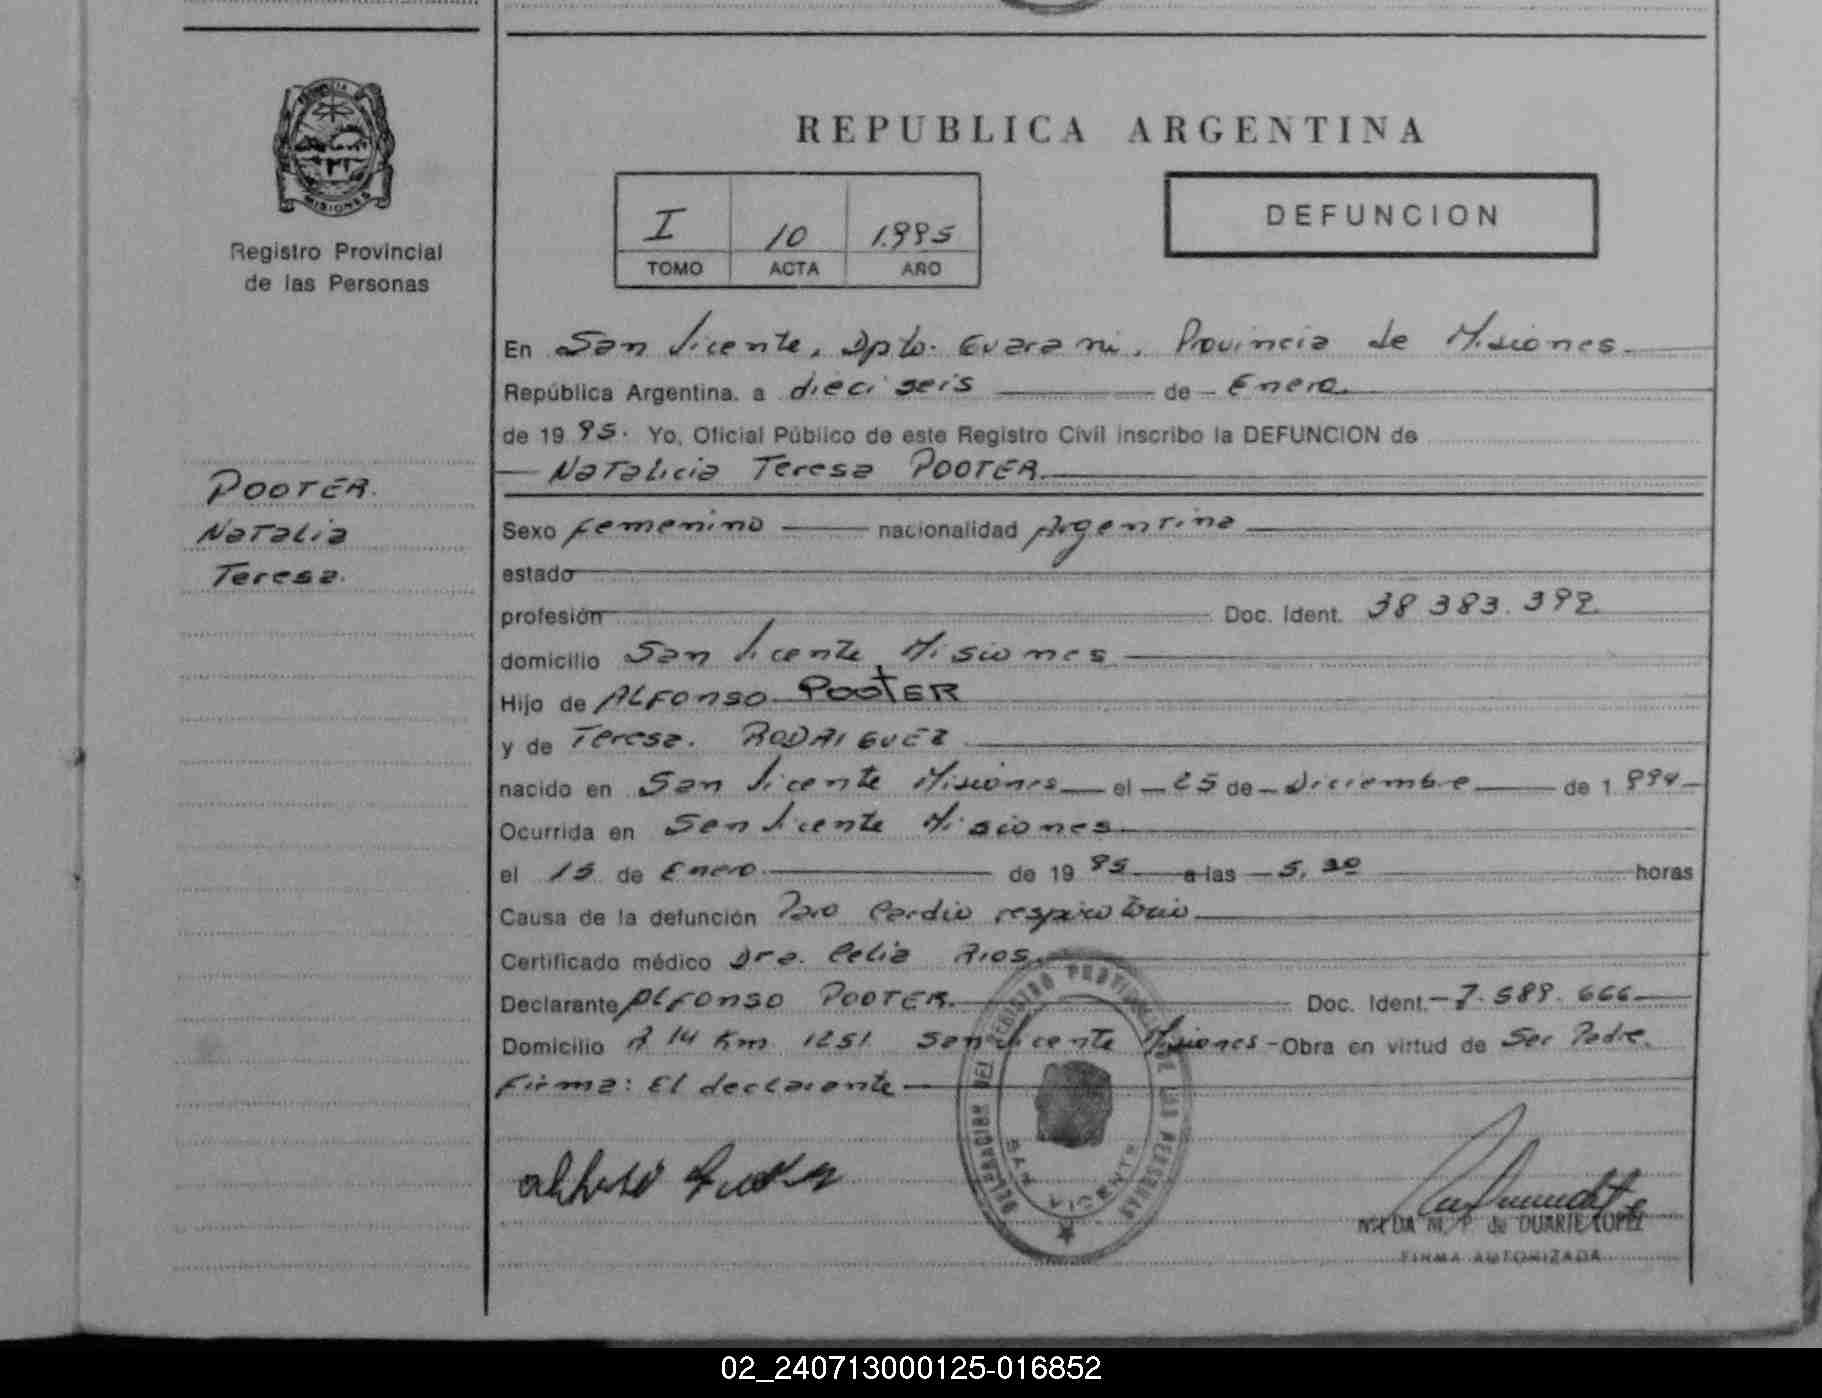 REPUBLICA ARGENTINA
PROVINCIA DE
MISIONES
Registro Provincial
de las Personas
I 10 1.995
TOMO ACTA AÑO
DEFUNCION
En San Vicente, Dpto. Guarani, Provincia de Misiones.
República Argentina. a dieci seis de Enero.
de 19 95. Yo, Oficial Público de este Registro Civil inscribo la DEFUNCION de
Natalicia Teresa POOTER.
POOTER.
Natalia
Teresa.
Sexo femenino nacionalidad Argentina
estado
profesión Doc. Ident. 38 383.392
domicilio San Vicente, Misiones
Hijo de ALFONSO POOTER
y de Teresa. RODRIGUEZ
nacido en San Vicente Misiones el 25 de Diciembre de 1.994
Ocurrida en San Vicente Misiones
el 15 de Enero de 19 95 a las 5,30 horas
Causa de la defunción Paro Cardio respiratorio
Certificado médico Dra. Celia Rios.
Declarante ALFONSO POOTER. Doc. Ident. 7.589.666
Domicilio R 14 Km 1251 San Vicente Misiones - Obra en virtud de Ser Padre.
Firma: El declarante
DELEGACION DEL REGISTRO PROVINCIAL DE LAS PERSONAS
SAN VICENTE
de DUARTE LOPEZ
FIRMA AUTORIZADA
02_240713000125-016852